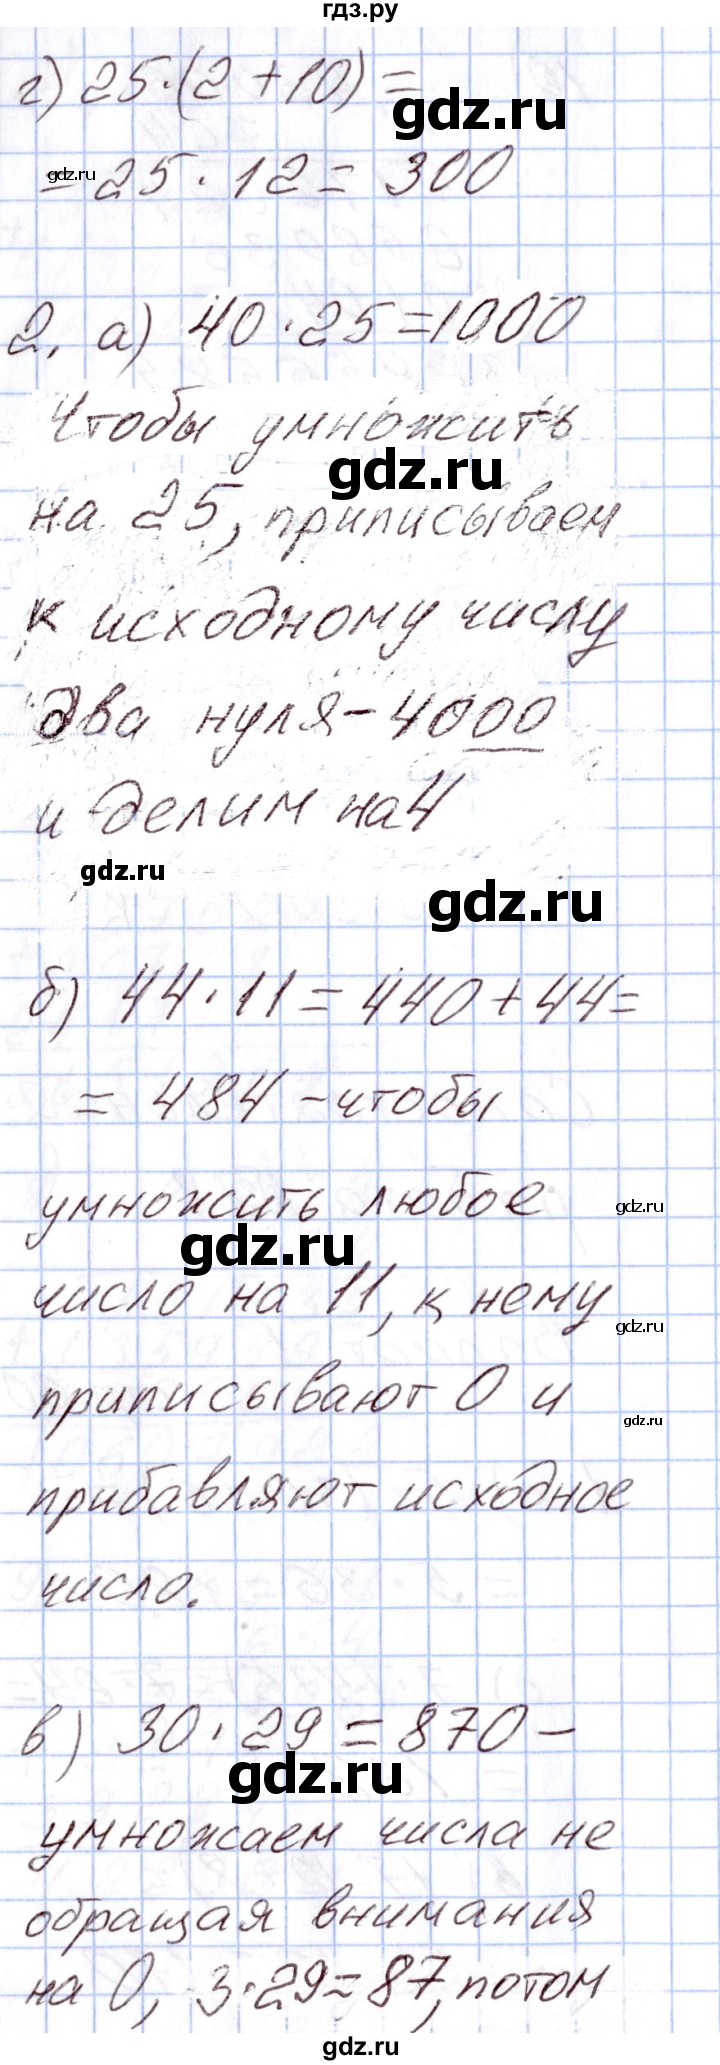 гдз.ру
г) 25·(2+10)=
gdz.ru
gdz.ru
=25·12=300
2. а) 40·25=1000
Чтобы умножить
gdz.ru
на 25, приписываем
к исходному числу
два нуля-4000
и делим на 4
gdz.ru
gdz.ru
б) 44·11=440+44=
=484-чтобы
умножить любое
gdz.ru
gdz.ru
число на 11, к нему
gdz.ru
приписывают 0 и
gdz.ru
прибавляют исходное
число.
в) 30·29=870-
gdz.ru
умножаем числа не
обращая внимания
на 0, 3·29=87, потом
gdz.ru